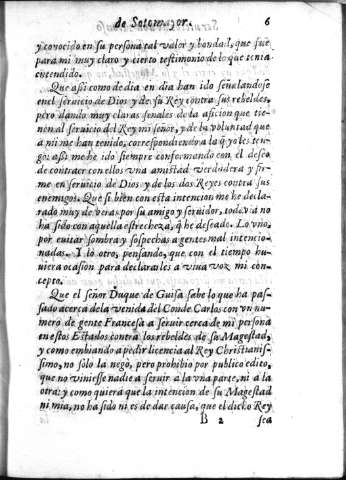 de Sotomayor. 6
y conocido en su persona tal valor y bondad, que fue
para mi muy claro y cierto testimonio de lo que tenia
entendido.
Que assi como de dia en dia han ido señalandose
en el seruicio de Dios y de su Rey contra sus rebeldes,
pero dando muy claras señales de la aficion que tie-
nen al seruicio del Rey mi señor, y de la voluntad que
a mi me han tenido, correspondiendo a la q̃ yo les ten-
go: assi me he ido siempre conformando con el deseo
de contraer con ellos vna amistad verdadera y fir-
me en seruicio de Dios y de los dos Reyes contra sus
enemigos. Que si bien con esta intencion me he decla-
rado muy de veras por su amigo y seruidor, todavia no
ha sido con aquella estrecheza, q̃ he deseado. Lo vno,
por euitar sombra y sospechas a gentes mal intencio-
nadas. Y lo otro, pensando, que con el tiempo hu-
uiera ocasion para declararles a viua voz mi con-
cepto.
Que el señor Duque de Guisa sabe lo que ha pas-
sado acerca de la venida del Conde Carlos con vn nu-
mero de gente Francesa a seruir cerca de mi persona
en estos Estados contra los rebeldes de su Magestad,
y como embiando a pedir licencia al Rey Christianis-
simo, no solo la negò, pero prohibio por publico edito,
que no viniesse nadie a seruir a la vna parte, ni a la
otra: y como quiera que la intencion de su Magestad
ni mia, no ha sido ni es de dar causa, que el dicho Rey
B 2 sea